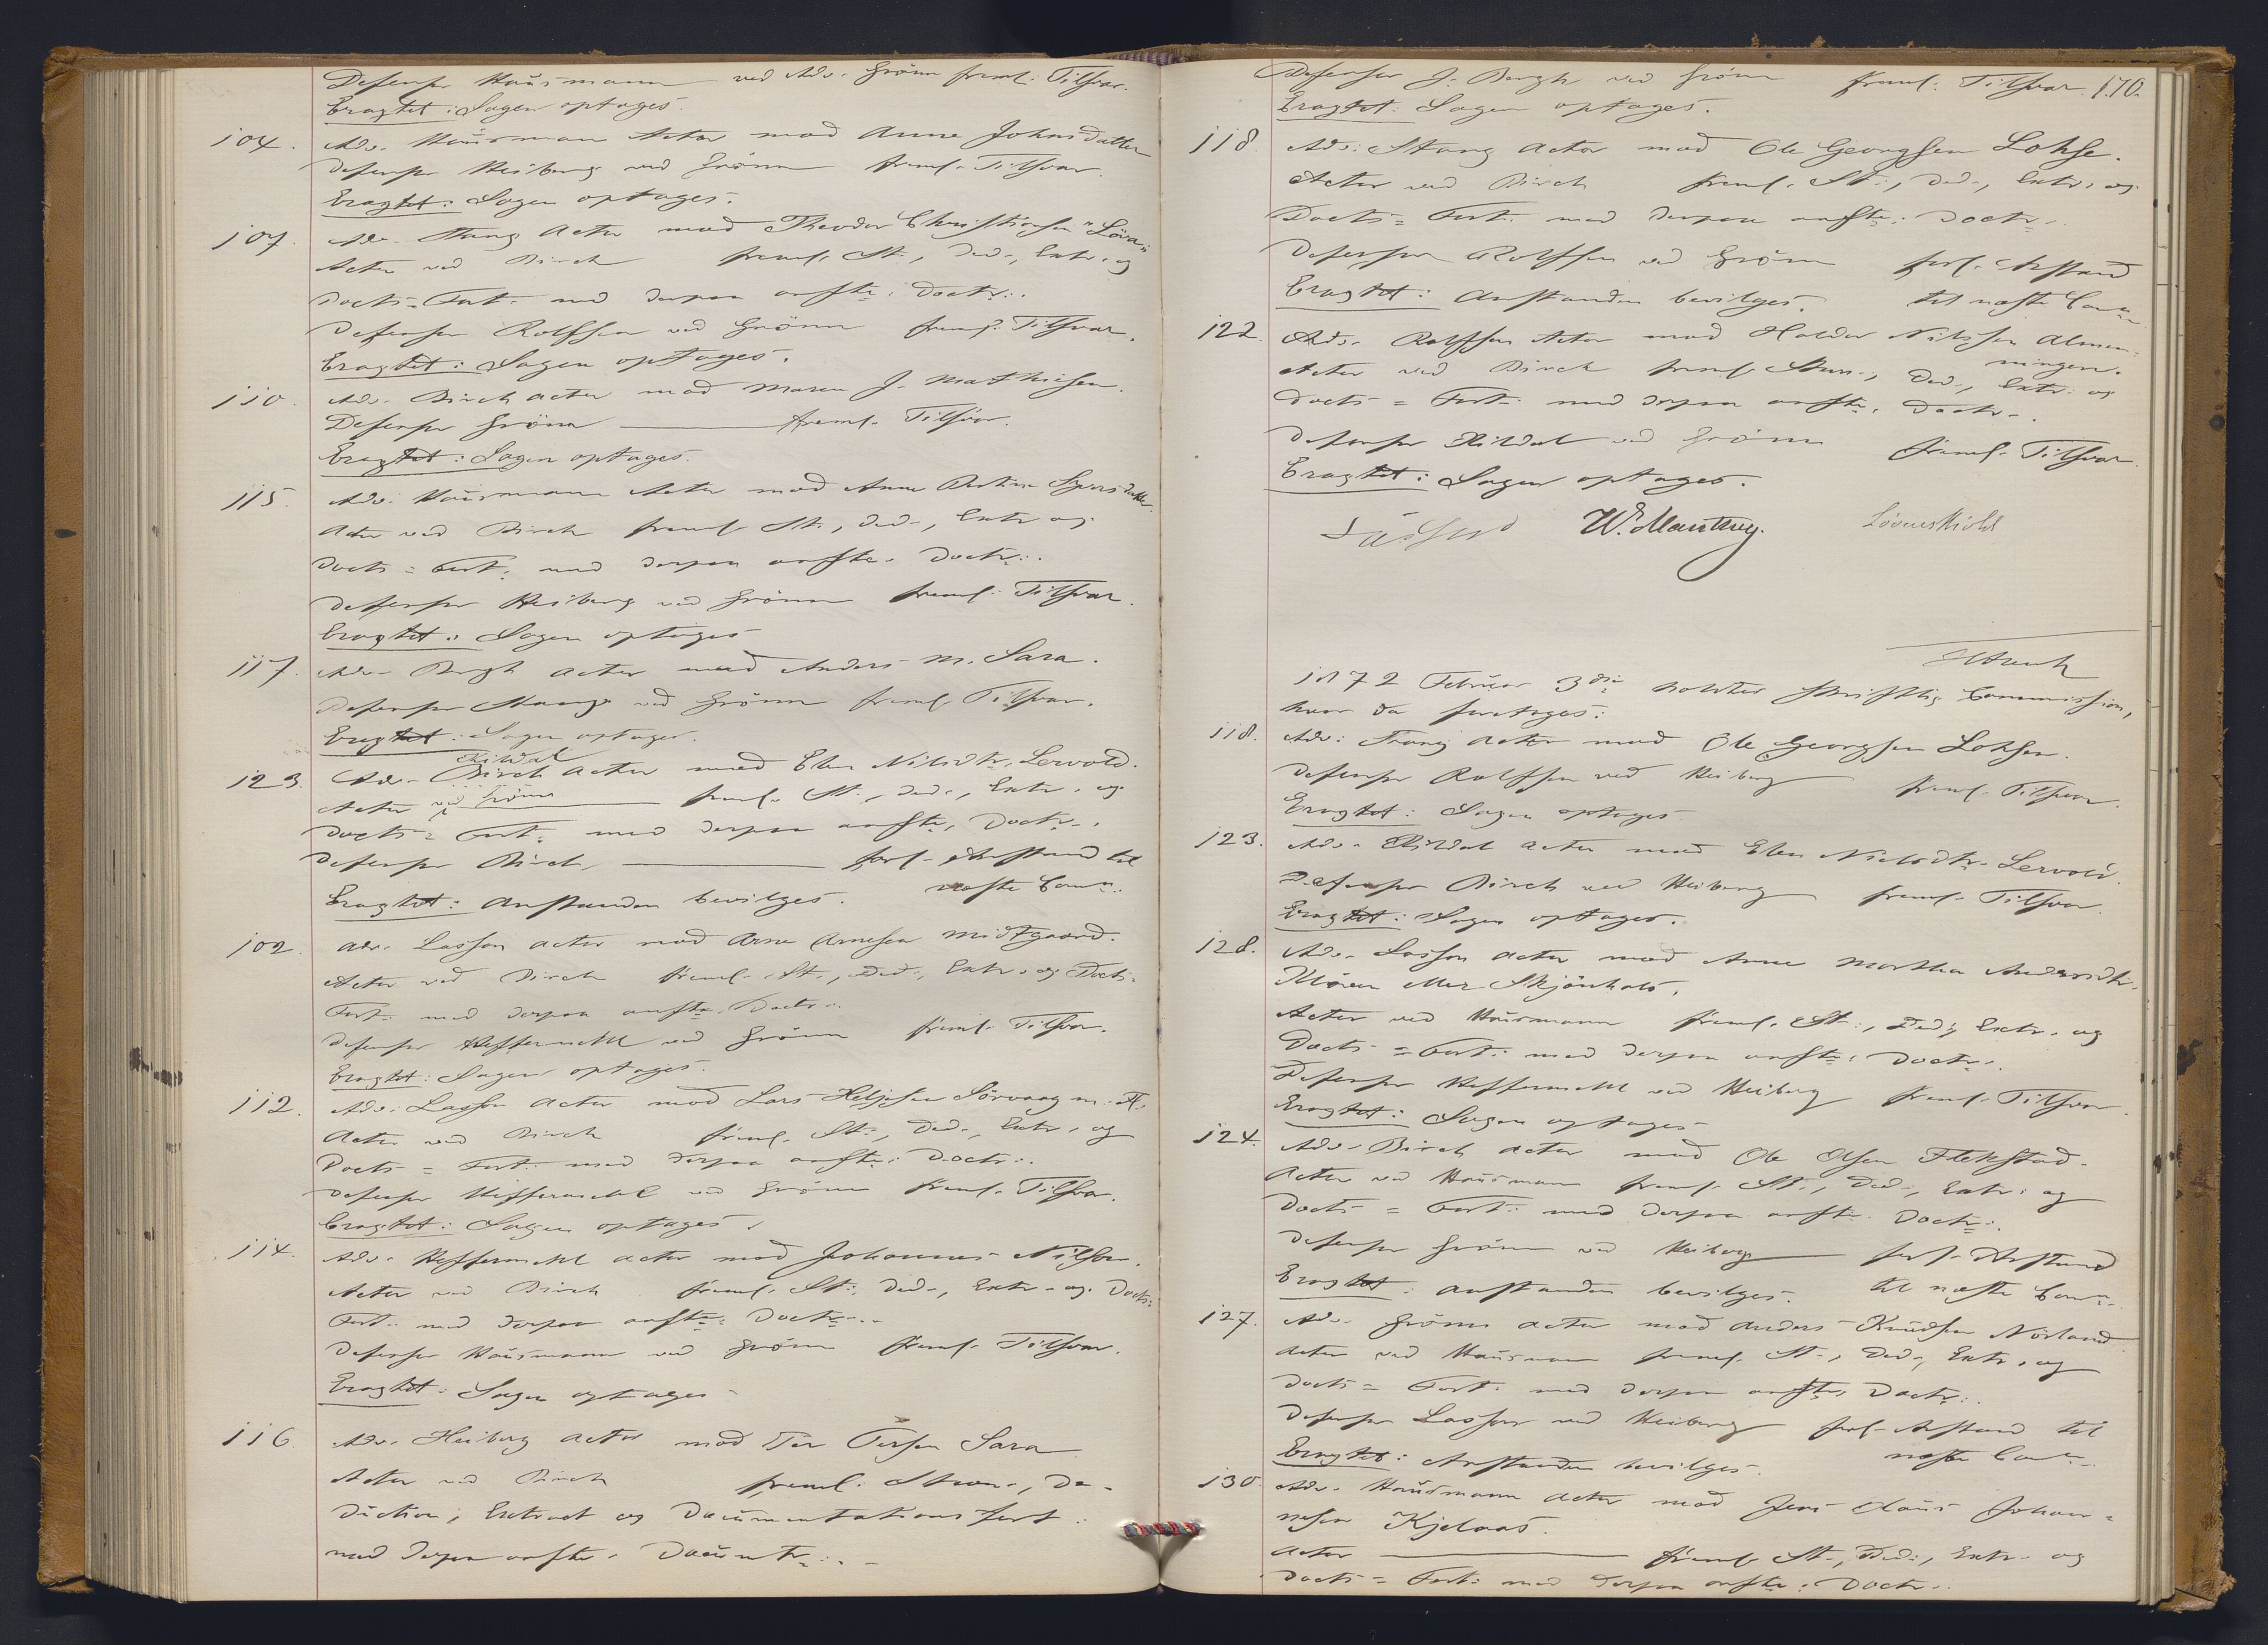 Defensor Hausmann ved Adv. Grönn freml. Tilsvar.
Eragtet: Sagen optages.
104. Adv. Hausman Actor mod Anne Johnsdatter
Defensor Heiberg ved Grönn freml. Tilsvar.
Eragtet: Sagen optages.
107. Adv. Stang Actor mod Theodor Christiansen "Löva"
Actor ved Birch freml. St., Ded., Extr. og
Docts = Fort. med derpaa anfte. Doctr.
Defensor Rolfsen ved Grönn freml. Tilsvar.
Eragtet: Sagen optages.
110. Adv. Birch Actor mod Maren J. Mathiesen.
Defensor Grönn freml. Tilsvar.
Eragtet: Sagen optages.
115. Adv. Hausmann Actor mod Anne Siversdatter.
Actor ved Birch freml. St., Ded., Extr. og
Docts = Fort. med derpaa anfte. Doctr.
Defensor Heiberg ved Grönn freml. Tilsvar.
Eragtet: Sagen optages
117. Adv. Bergh Actor mod Anders M. Sara.
Defensor Stang ved Grönn freml. Tilsvar.
Eragtet: Sagen optages.
Kildal
123. Adv. Birch Actor mod Elen Nilsdtr. Lervold.
Actor ved Grönn freml. St., Ded., Extr. og
Docts = Fort. med derpaa anfte. Doctr.
Defensor Birch forl. Anstand til
Eragtet: Anstanden bevilges. næste Comn.
102. Adv. Lasson Actor mod Arne Arnesen Midtgaard.
Actor ved Birch freml. St., Ded., Extr. og Docts.
Fort. med derpaa anfte. Doctr.
Defensor Heffermehl ved Grönn freml. Tilsvar.
Eragtet: Sagen optages.
112. Adv. Lasson Actor mod Lars Heljesen Sörvaag m. Fl.
Actor ved Birch freml. St., Ded., Extr. og
Docts = Fort. med derpaa anfte. Doctr.
Defensor Heffermehl ved Grönn freml. Tilsvar.
Eragtet: Sagen optages.
114. Adv. Heffermehl Actor mod Johannes Nilsen.
Actor ved Birch freml. St., Ded., Extr. og Docts.
Fort. med derpaa anfte. Doctr.
Defensor Hausmann ved Grönn freml. Tilsvar.
Eragtet: Sagen optages
116. Adv. Heiberg Actor mod Per Persen Sara
Actor ved Birch freml. Stevn., De-
duction, Extract og Documentationsfort.
med derpaa anfte. Documtr.
Defensor J. Bergh ved Grönn freml. Tilsvar. 170.
Eragtet: Sagen optages.
118. Adv. Stang Actor mod Ole Georgsen Lohse.
Actor ved Birch freml. St., Ded., Extr. og
Docts = Fort. med derpaa anfte. Doctr.
Defensor Rolfsen ved Grönn forl. Anstand
Eragtet: Anstanden bevilges. til næste Comn.
122. Adv. Rolfsen Actor mod Haldor Nilsen Almen-
ningen.
Actor ved Birch freml. Stevn., Ded., Extr. og
Docts = Fort. med derpaa anfte. Doctr.
Defensor Kildal ved Grönn freml. Tilsvar.
Eragtet: Sagen optages.
Lasson W. Manthey. Løvenskiold
1872 Februar 3die holdtes skriftlig Commission,
hvor da foretoges:
118. Adv. Stang Actor mod Ole Georgsen Lohsen.
Defensor Rolfsen ved Heiberg freml. Tilsvar.
Eragtet: Sagen optages
123. Adv. Kildal Actor mod Elen Nielsdtr. Lervold.
Defensor Birch ved Heiberg freml. Tilsvar.
Eragtet: Sagen optages.
128. Adv. Lasson Actor mod Anne Martha Andersdtr.
eller Skjönhals.
Actor ved Hausmann freml. St., Ded., Extr. og
Docts = Fort. med derpaa anfte. Doctr.
Defensor Heffermehl ved Heiberg freml. Tilsvar.
Eragtet: Sagen optages
124. Adv. Birch Actor mod Ole Olsen Flekstad.
Actor ved Hausmann freml. St., Ded., Extr. og
Docts = Fort. med derpaa anfte. Doctr.
Defensor Grönn ved Heiberg forl. Anstand
Eragtet: Anstanden bevilges. til næste Comn.
127. Adv. Grönn Actor mod Anders Knudsen Nörland
Actor ved Hausmann freml. St., Ded., Extr. og
Docts = Fort. med derpaa anfte. Doctr.
Defensor Lasson ved Heiberg forl. Anstand til
Eragtet: Anstanden bevilges. næste Comn.
130. Adv. Hausmann Actor mod Jens Claus Johan-
nesen Kjelaas.
Actor freml. St., Ded., Extr. og
Docts = Fort. med derpaa anfte. Doctr.